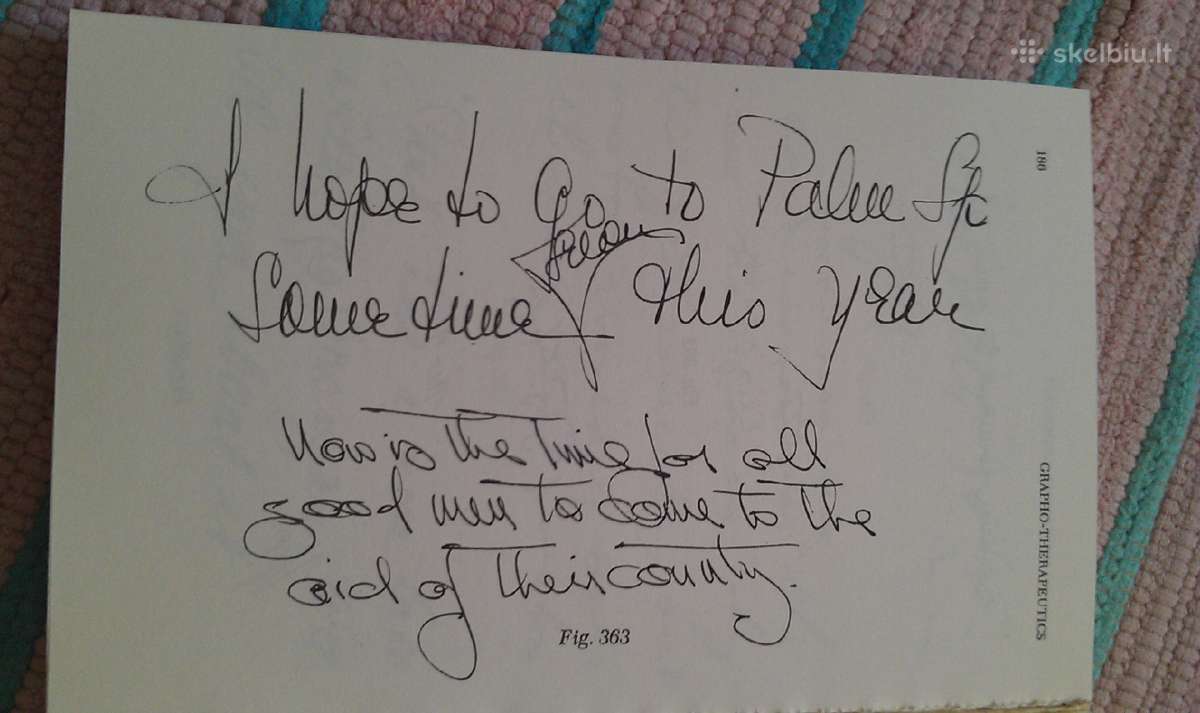 skelbiu.lt
186
I hope to go to Palm Sp
soon
Sometime this year
Now is the time for all
good men to come to the
aid of their county.
Fig. 363
GRAPHO-THERAPEUTICS